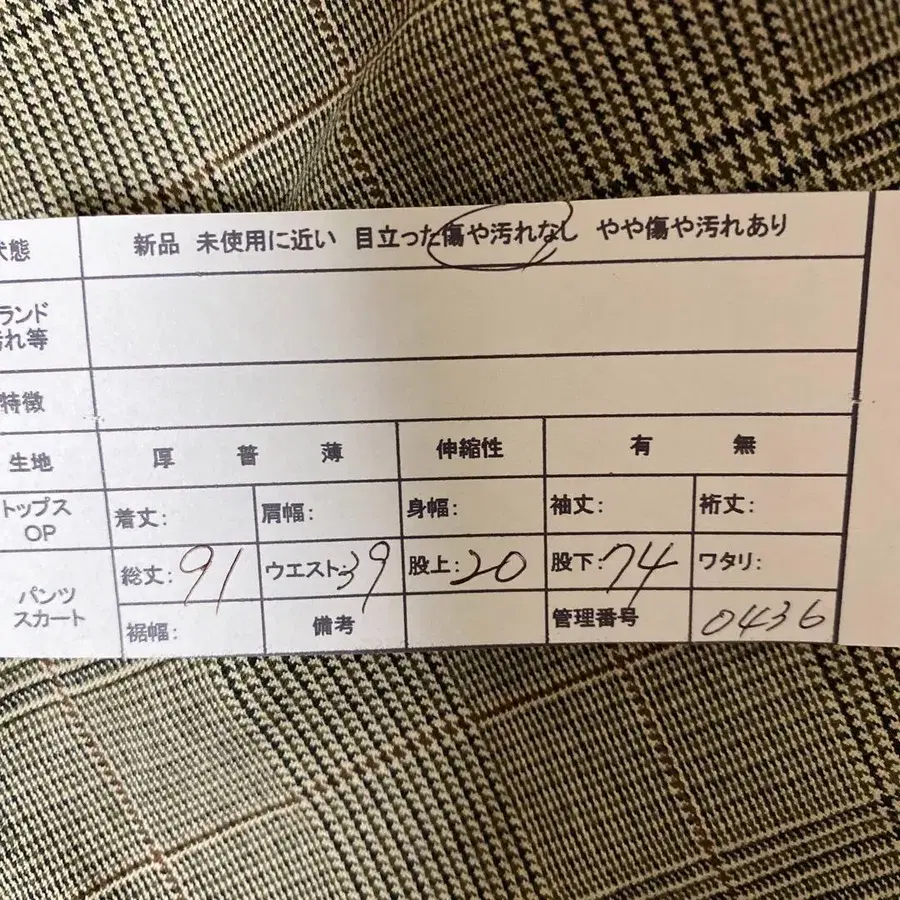 状態 新品 未使用に近い 目立った傷や汚れなし やや傷や汚れあり
ランド
汚れ等
特徴
生地 厚 普 薄 伸縮性 有 無
トップス
OP
着丈: 肩幅: 身幅: 袖丈: 裄丈:
パンツ
スカート
総丈:91 ウエスト:39 股上:20 股下:74 ワタリ:
裾幅: 備考 管理番号 0436